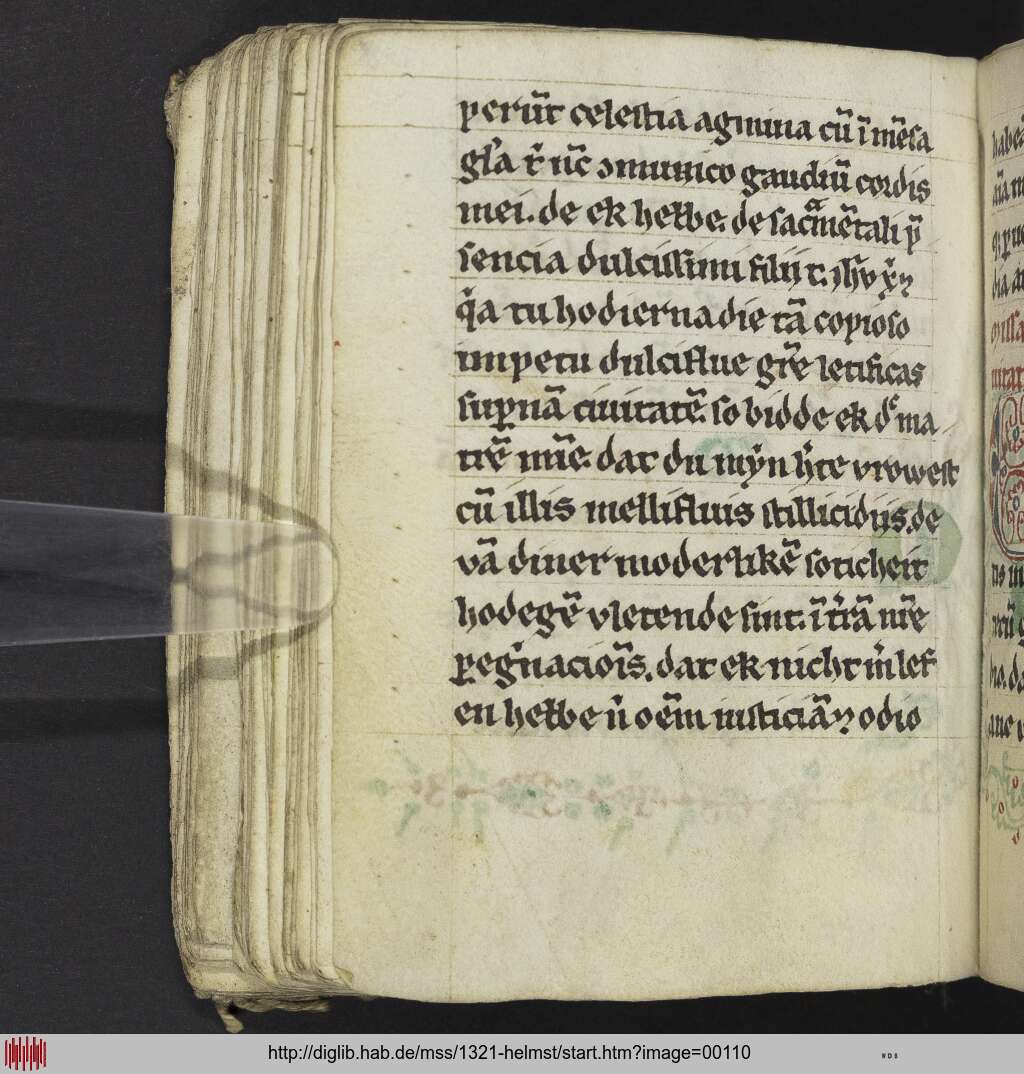 perūt celestia agmina cū īmēsa
gl̄a t̄ nūc ꝯmunico gaudiū cordis
mei. de ek hebbe de sacᵃmētali p̄
sencia dulcissimi filij t. ih̄v xp̄ı
qͥa tu hodierna die tā copioso
impetu dulciflue gr̄e letificas
suꝑnā ciuitatē. so bidde ek dͤ ma
trē mīe. dat du myn h̄te vrowest
cū illis mellifluis stillicidijs. de
vā diner moderlikē soticheit
hodegē vletende sint. ī t̄rā nr̄e
ꝑegͥnacionīs. dat ek nicht m̄ lef
en hebbe n̄ oēm iusticiā ⁊ odio
http://diglib.hab.de/mss/1321-helmst/start.htm?image=00110